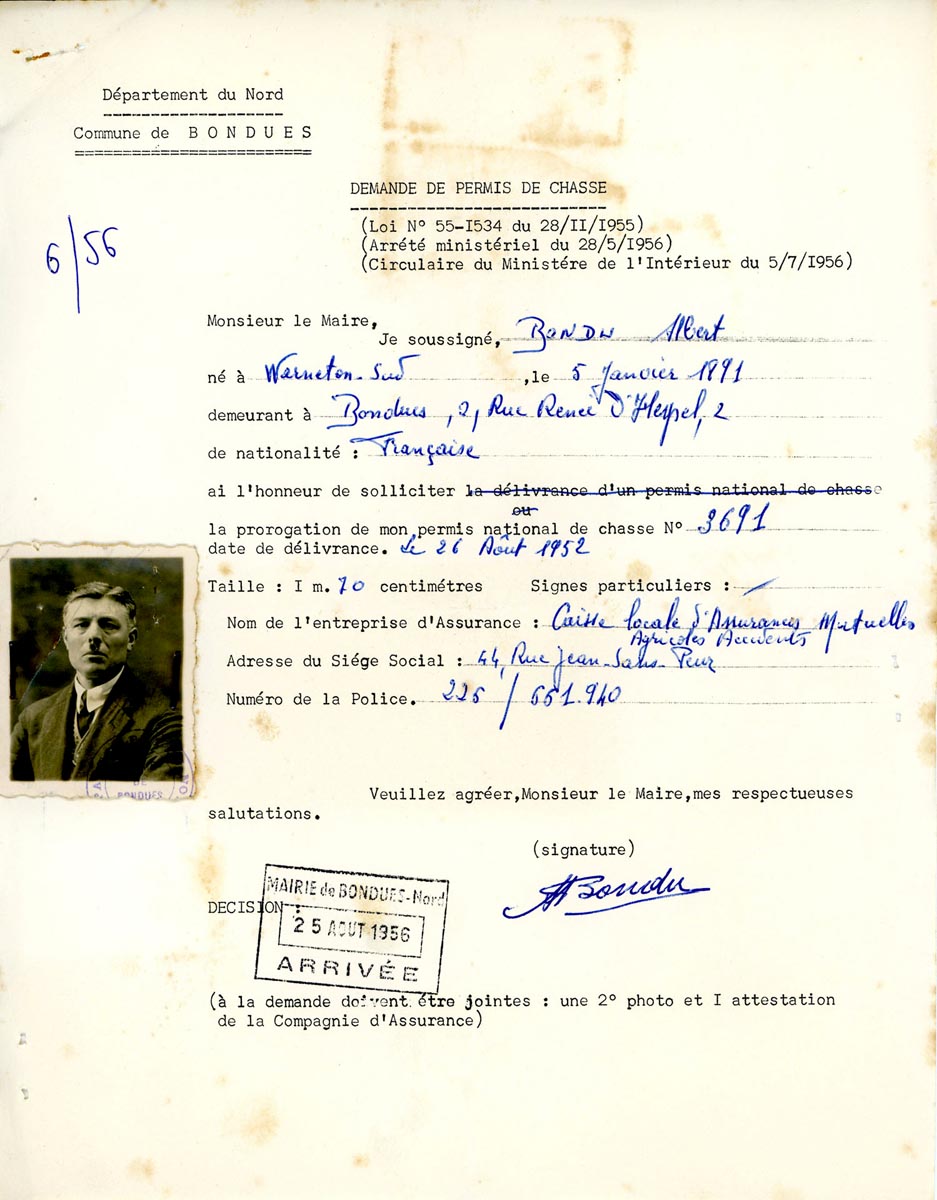 Département du Nord
Commune de B O N D U E S
6/56
DEMANDE DE PERMIS DE CHASSE
(Loi N° 55-I534 du 28/II/I955)
(Arrété ministériel du 28/5/1956)
(Circulaire du Ministére de l'Intérieur du 5/7/I956)
Monsieur le Maire,
Je soussigné, BONDU Albert
né à Warneton-Sud ,le 5 Janvier 1891
demeurant à Bondues, 2, Rue Renée D'Hespel, 2
de nationalité : Française
ai l'honneur de solliciter la délivrance d'un permis national de chasse
ou
la prorogation de mon permis national de chasse N° 3691
date de délivrance. Le 26 Août 1952
Taille : I m. 70 centimétres Signes particuliers : /
Nom de l'entreprise d'Assurance : Caisse locale d'Assurances Mutuelles
Agricoles Accidents
Adresse du Siége Social : 44, Rue Jean-Sans-Peur
Numéro de la Police. 225 / 551.940
DE
BONDUES
Veuillez agréer,Monsieur le Maire,mes respectueuses
salutations.
(signature)
ABondu
MAIRIE de BONDUES-Nord
DECISION :
25 AOUT 1956
ARRIVÉE
(à la demande doivent étre jointes : une 2° photo et I attestation
de la Compagnie d'Assurance)